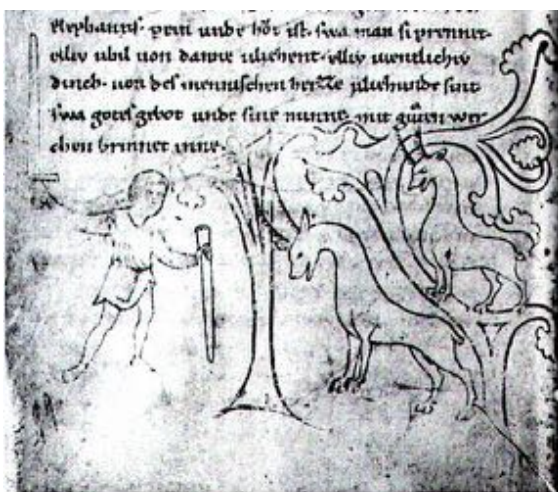 elephantis· pein unde hŏt ist· swa man si prennet·
elliv ubil von danne vliehent· elliv vientlichiv
dinch· von des mennischen hertze vliehunde sint
swa gotes gebot unde sine minne· mit gůten wer
chen brinnet inne·